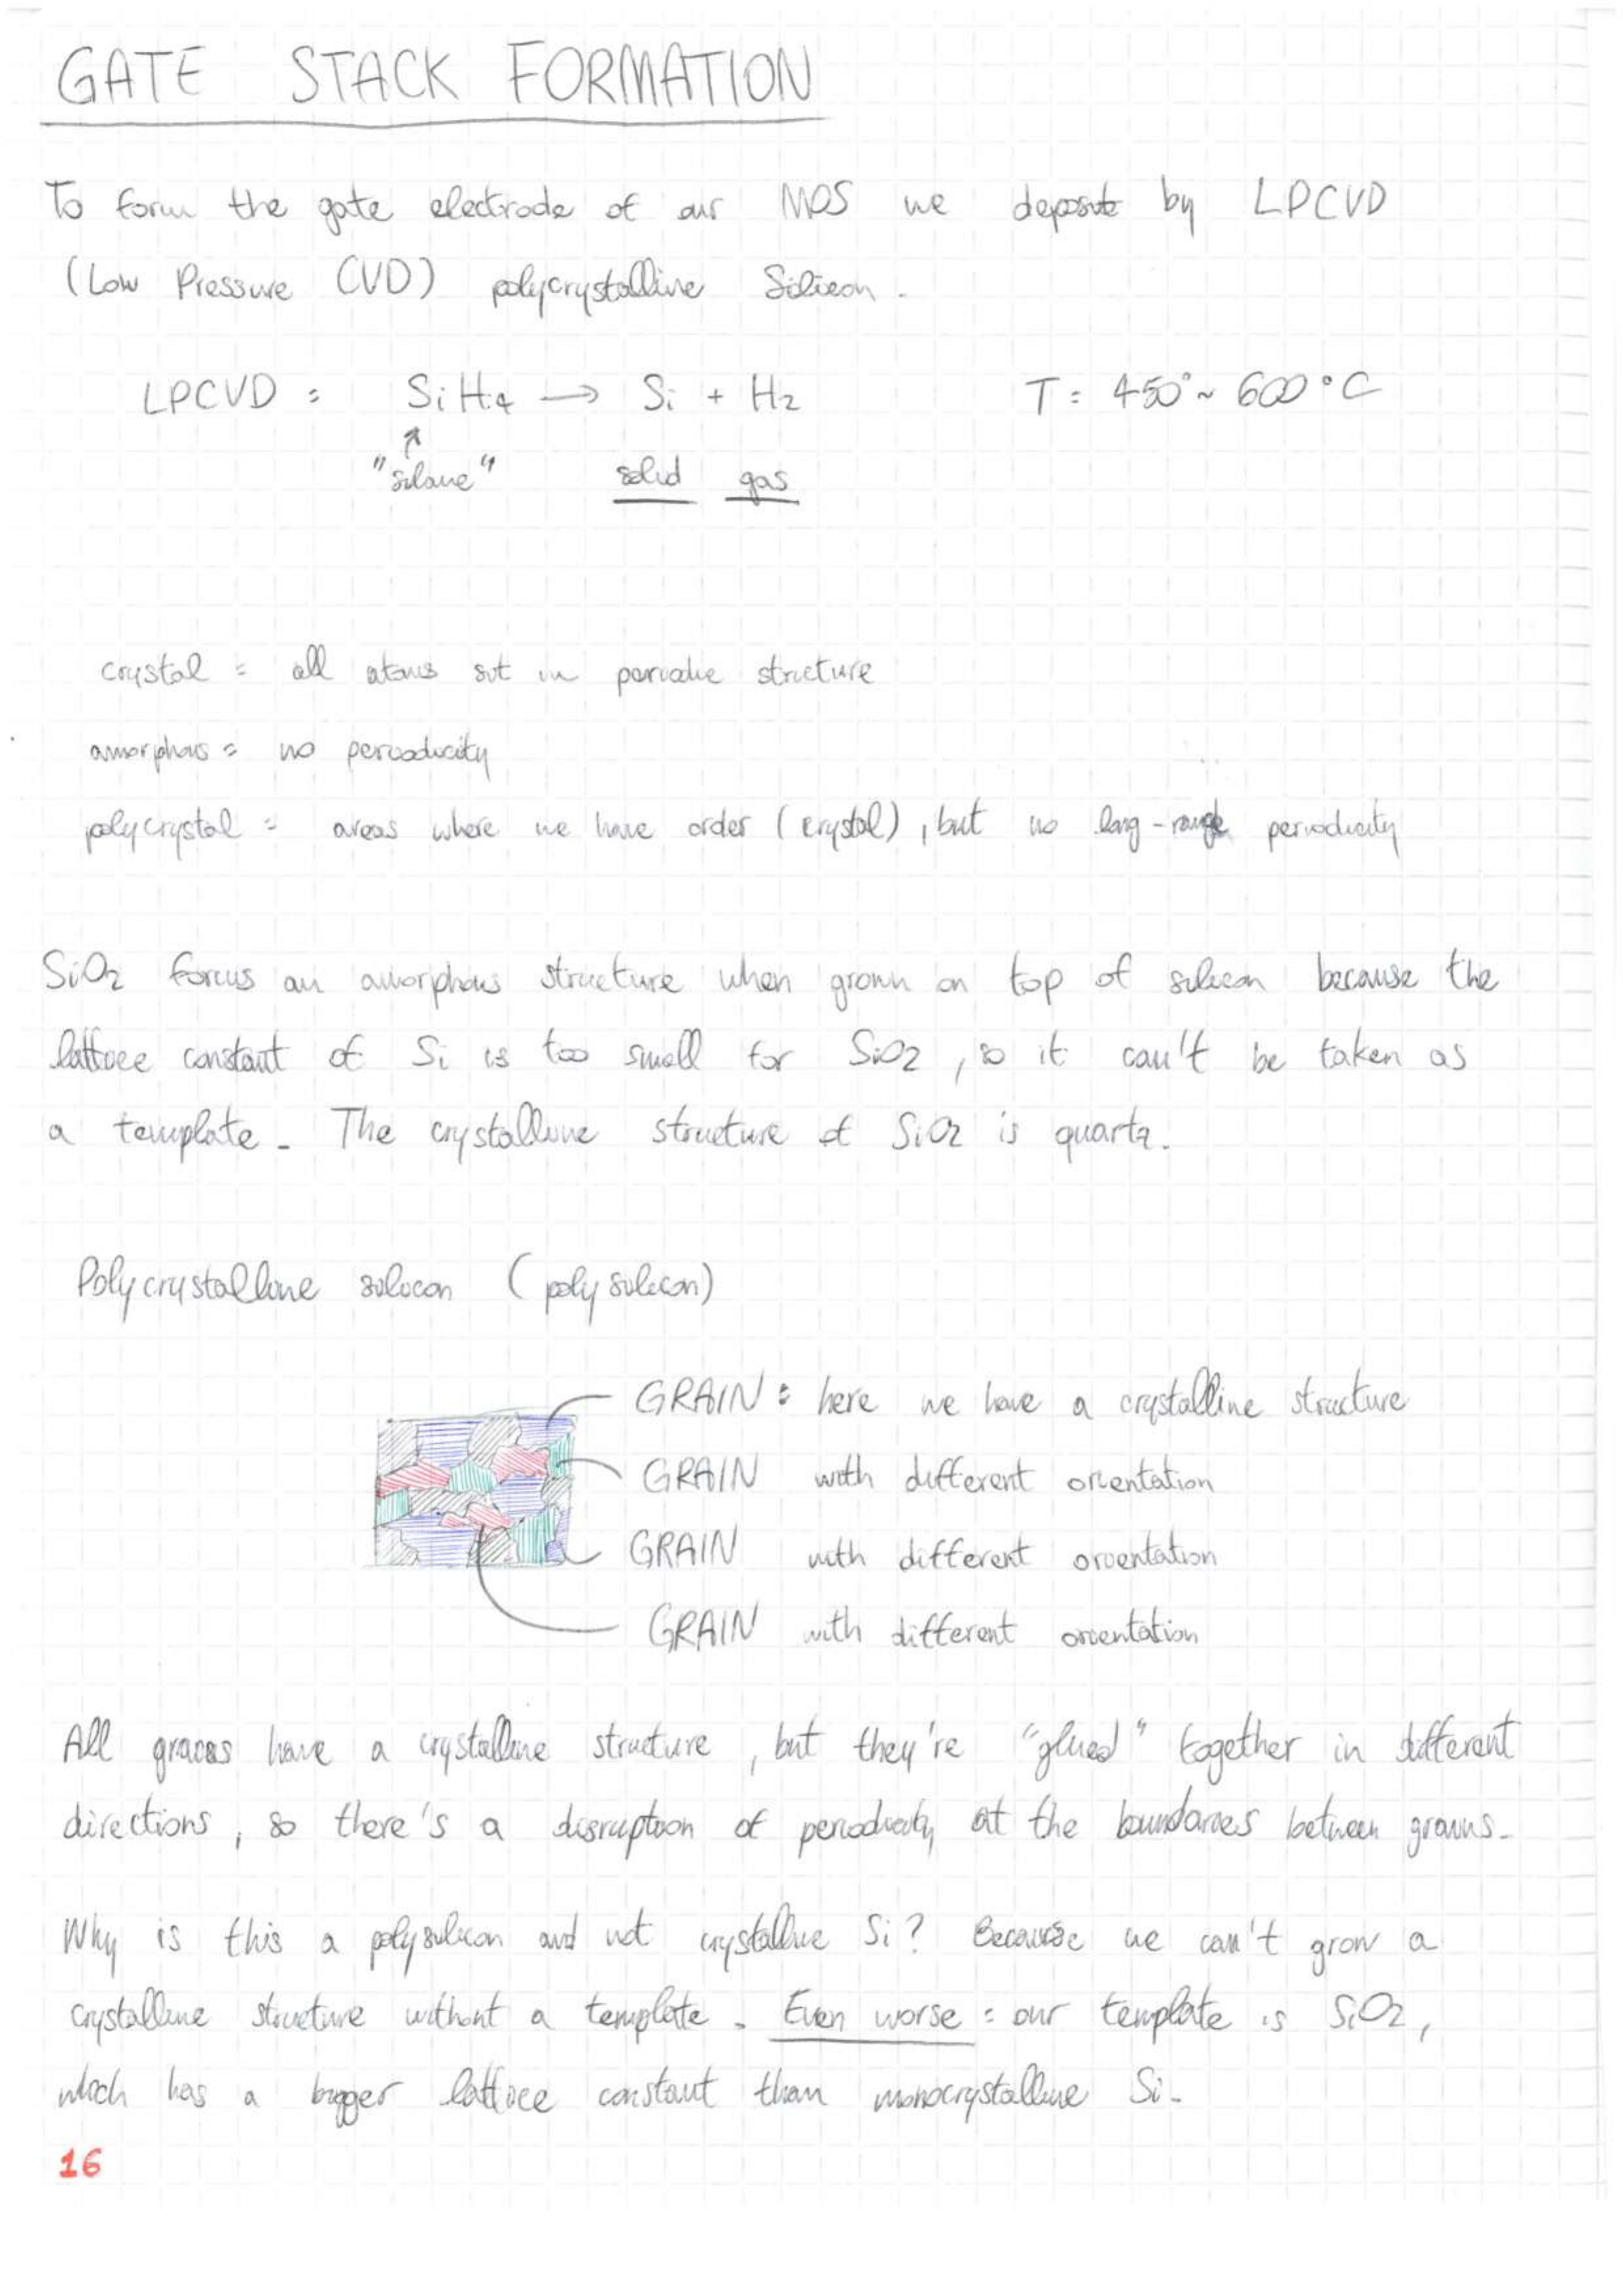 GATE STACK FORMATION
To form the gate electrode of our MOS we deposite by LPCVD
(Low Pressure CVD) polycrystalline Silicon.
LPCVD: SiH4 → Si + H2 T: 450° ~ 600°C
"silane" solid gas
crystal = all atoms sit in periodic structure
amorphous = no periodicity
polycrystal = areas where we have order (crystal), but no long-range periodicity
SiO2 forms an amorphous structure when grown on top of silicon because the
lattice constant of Si is too small for SiO2, so it can't be taken as
a template. The crystalline structure of SiO2 is quartz.
Polycrystalline silicon (polysilicon)
GRAIN: here we have a crystalline structure
GRAIN with different orientation
GRAIN with different orientation
GRAIN with different orientation
All grains have a crystalline structure, but they're "glued" together in different
directions, so there's a disruption of periodicity at the boundaries between grains.
Why is this a polysilicon and not crystalline Si? Because we can't grow a
crystalline structure without a template. Even worse: our template is SiO2,
which has a bigger lattice constant than monocrystalline Si.
16